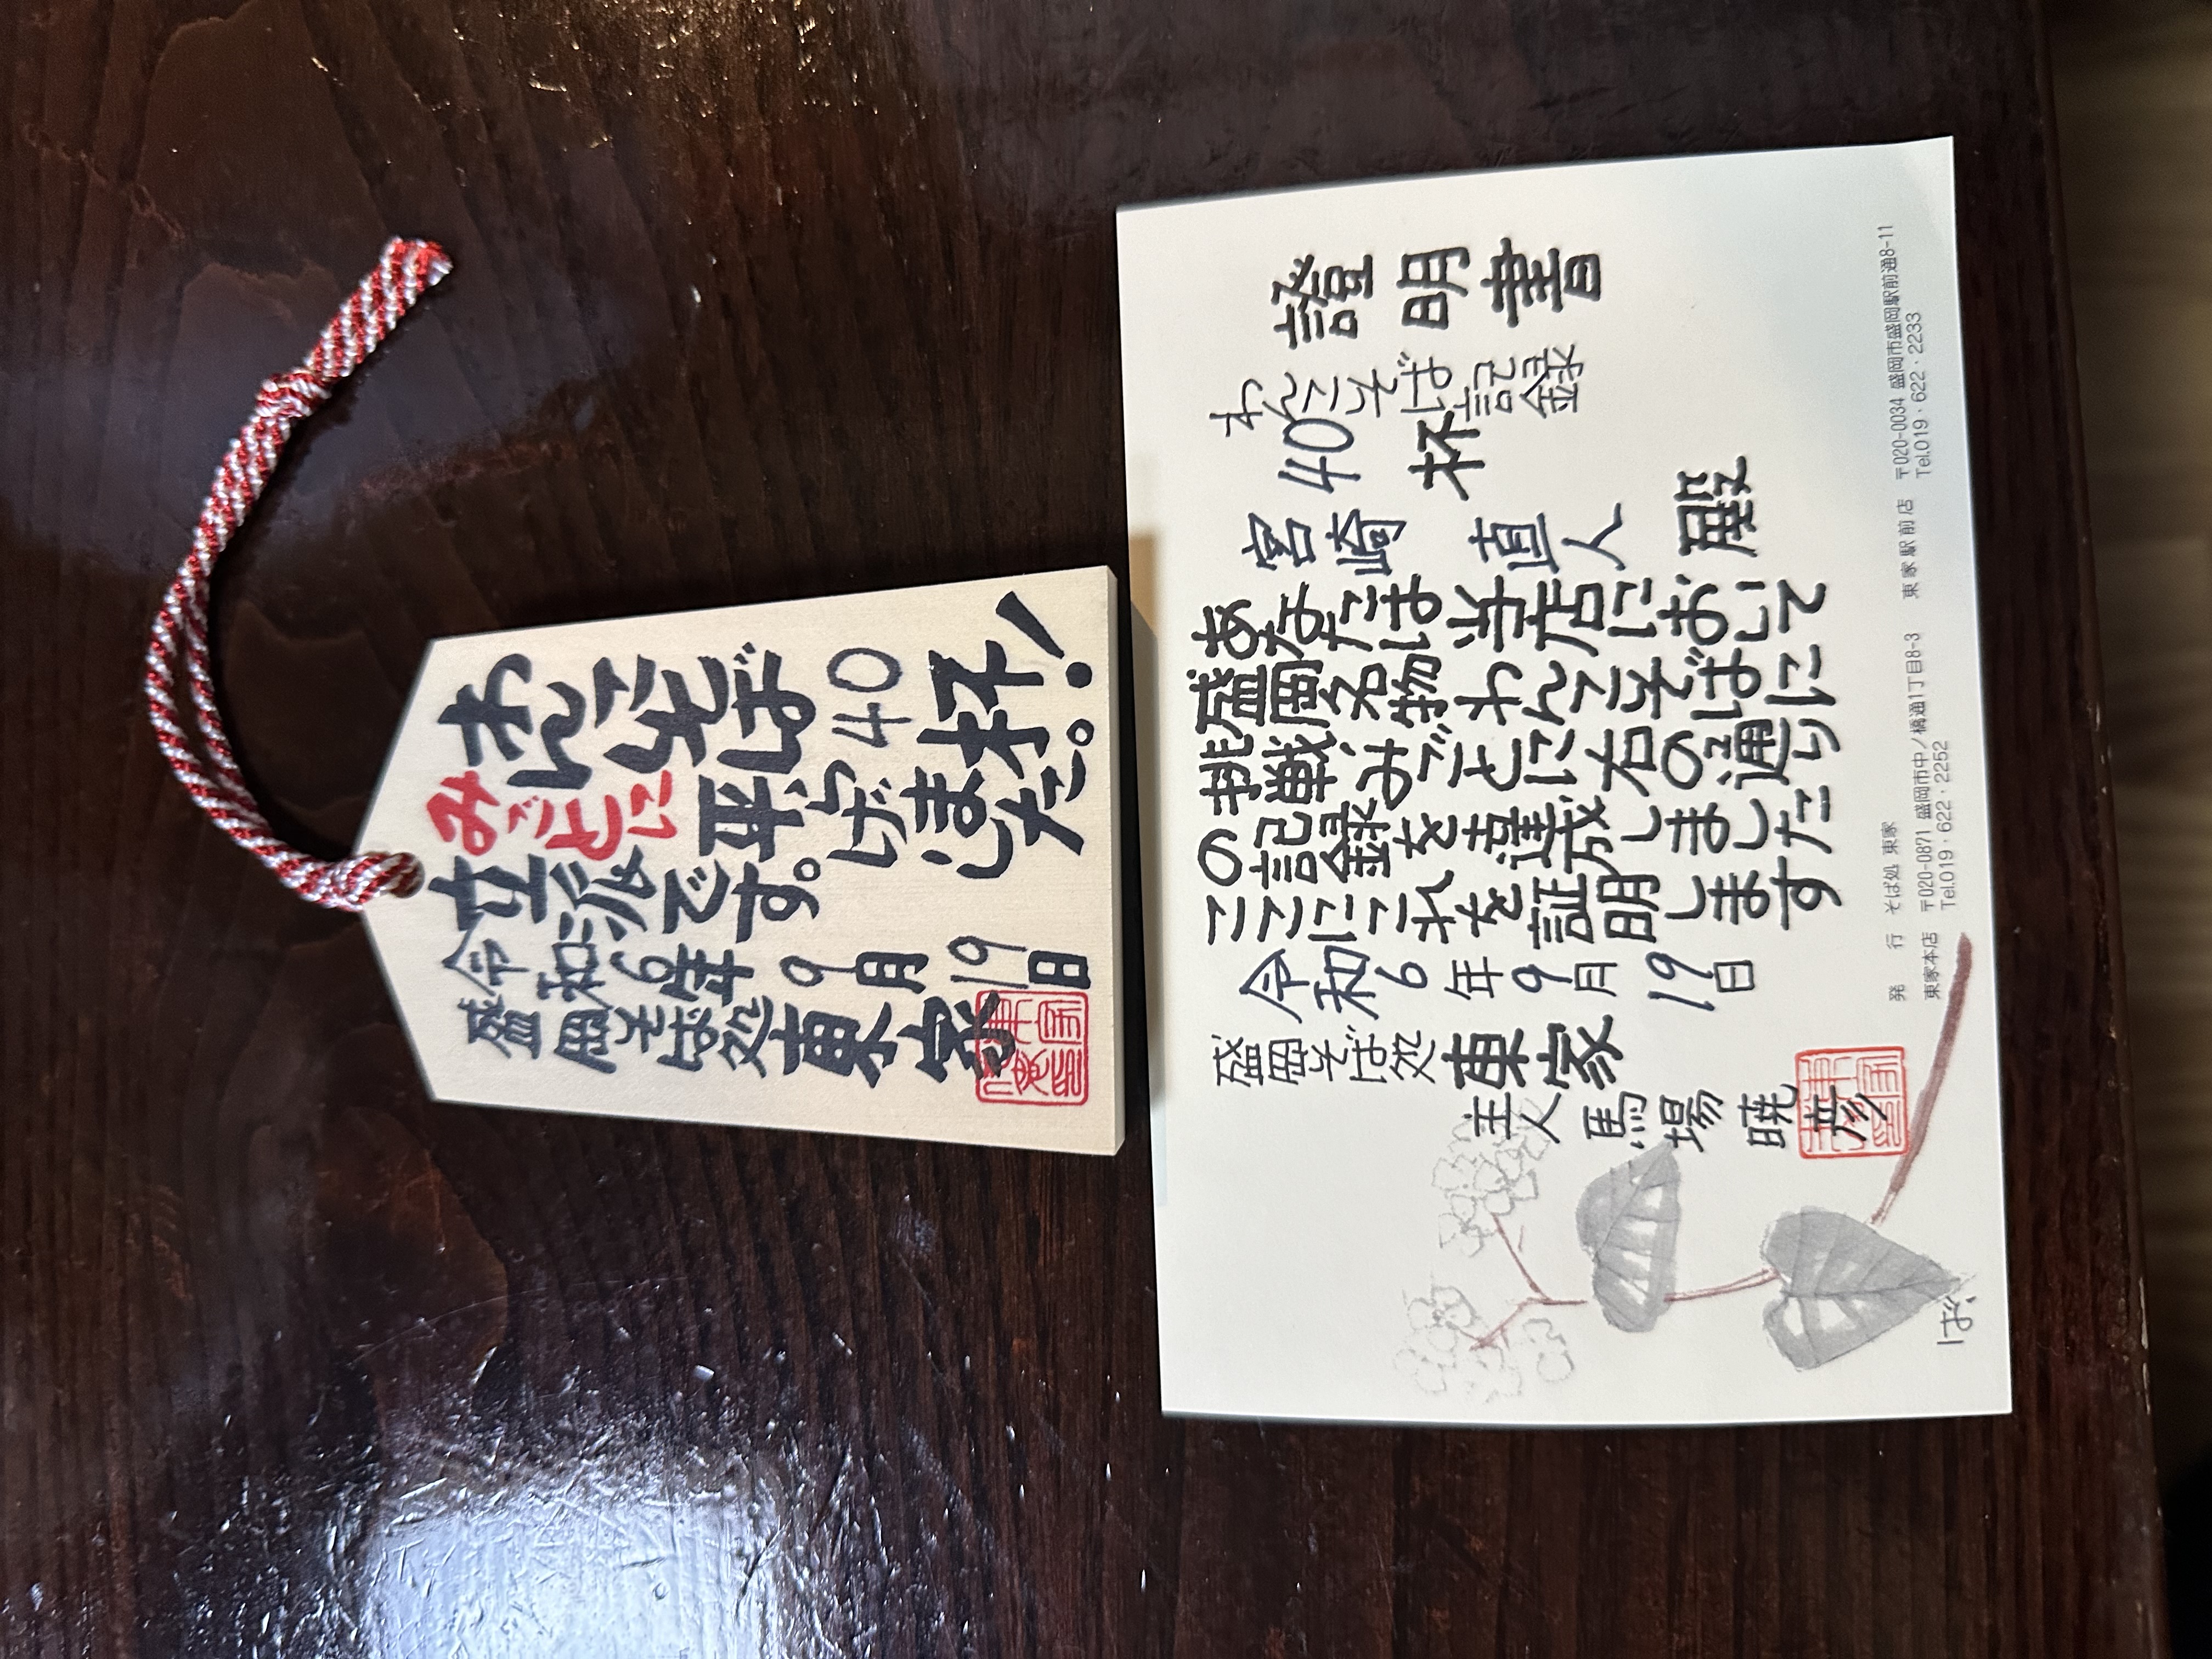 わんこそば40杯!
みごとに平らげました。
立派です。
令和6年9月19日
盛岡そば処東家
東家
證明書
わんこそば記録
40杯
宮崎 直人 殿
あなたは当店において
盛岡名物わんこそばに
挑戦、みごとに右の通り
の記録を達成しました
ここにこれを証明します
令和6年9月19日
盛岡そば処東家
主人 馬場暁彦
発 行 そば処 東家
東家本店 〒020-0871 盛岡市中ノ橋通1丁目8-3
Tel.019・622・2252
東家駅前店 〒020-0034 盛岡市盛岡駅前通8-11
Tel.019・622・2233
ば